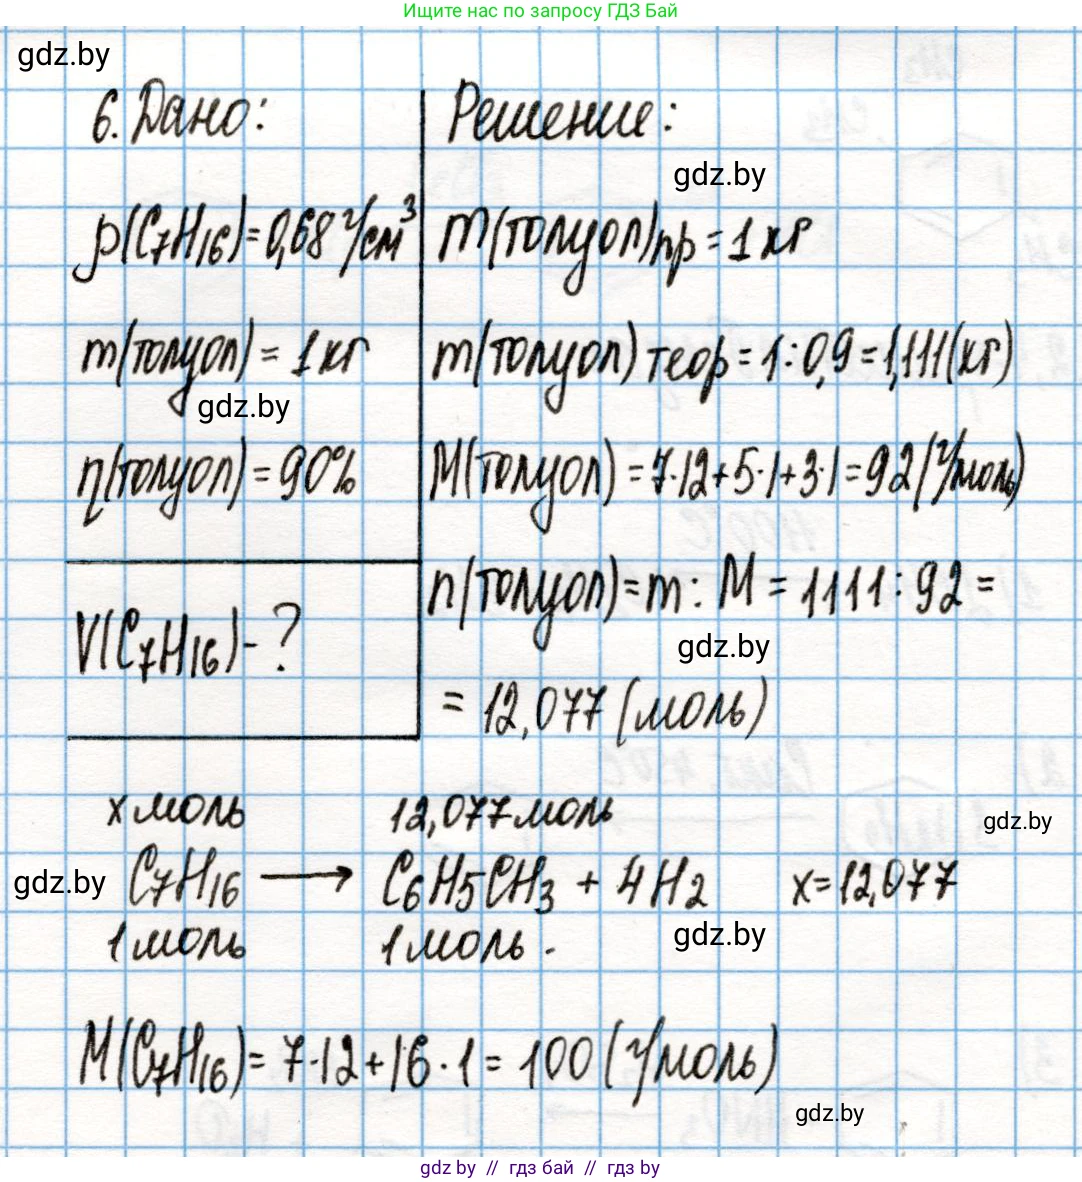 Ищите нас по запросу ГДЗ Бай
gdz.by
6. Дано:
ρ(C₇H₁₆) = 0,68 г/см³
m(толуол) = 1 кг
gdz.by
η(толуол) = 90%
V(C₇H₁₆) - ?
Решение:
gdz.by
m(толуол)пр = 1 кг
m(толуол) теор = 1 : 0,9 = 1,111 (кг)
M(толуол) = 7·12 + 5·1 + 3·1 = 92 (г/моль)
n(толуол) = m : M = 1111 : 92 =
gdz.by
= 12,077 (моль)
x моль 12,077 моль
gdz.by
gdz.by C₇H₁₆ → C₆H₅CH₃ + 4H₂ x = 12,077
1 моль 1 моль.
gdz.by
M(C₇H₁₆) = 7·12 + 16·1 = 100 (г/моль)
gdz.by
gdz by // гдз бай // гдз by